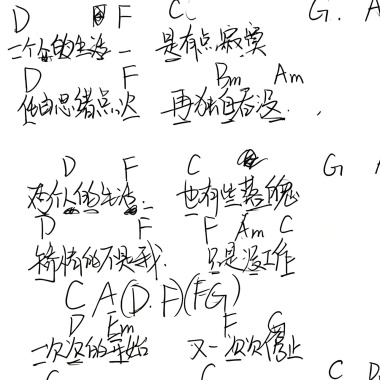 D F C G. A
一个人的生活 是有点寂寞
D F Bm Am
任由思绪点次 再独自吞没.
D F C G A
两个人的生活 也有些落魄
D F F Am C
矫情的不是我 只是没工作
C A (D.F)(FG)
D Em F G
一次次的开始 又一次次停止
C C D